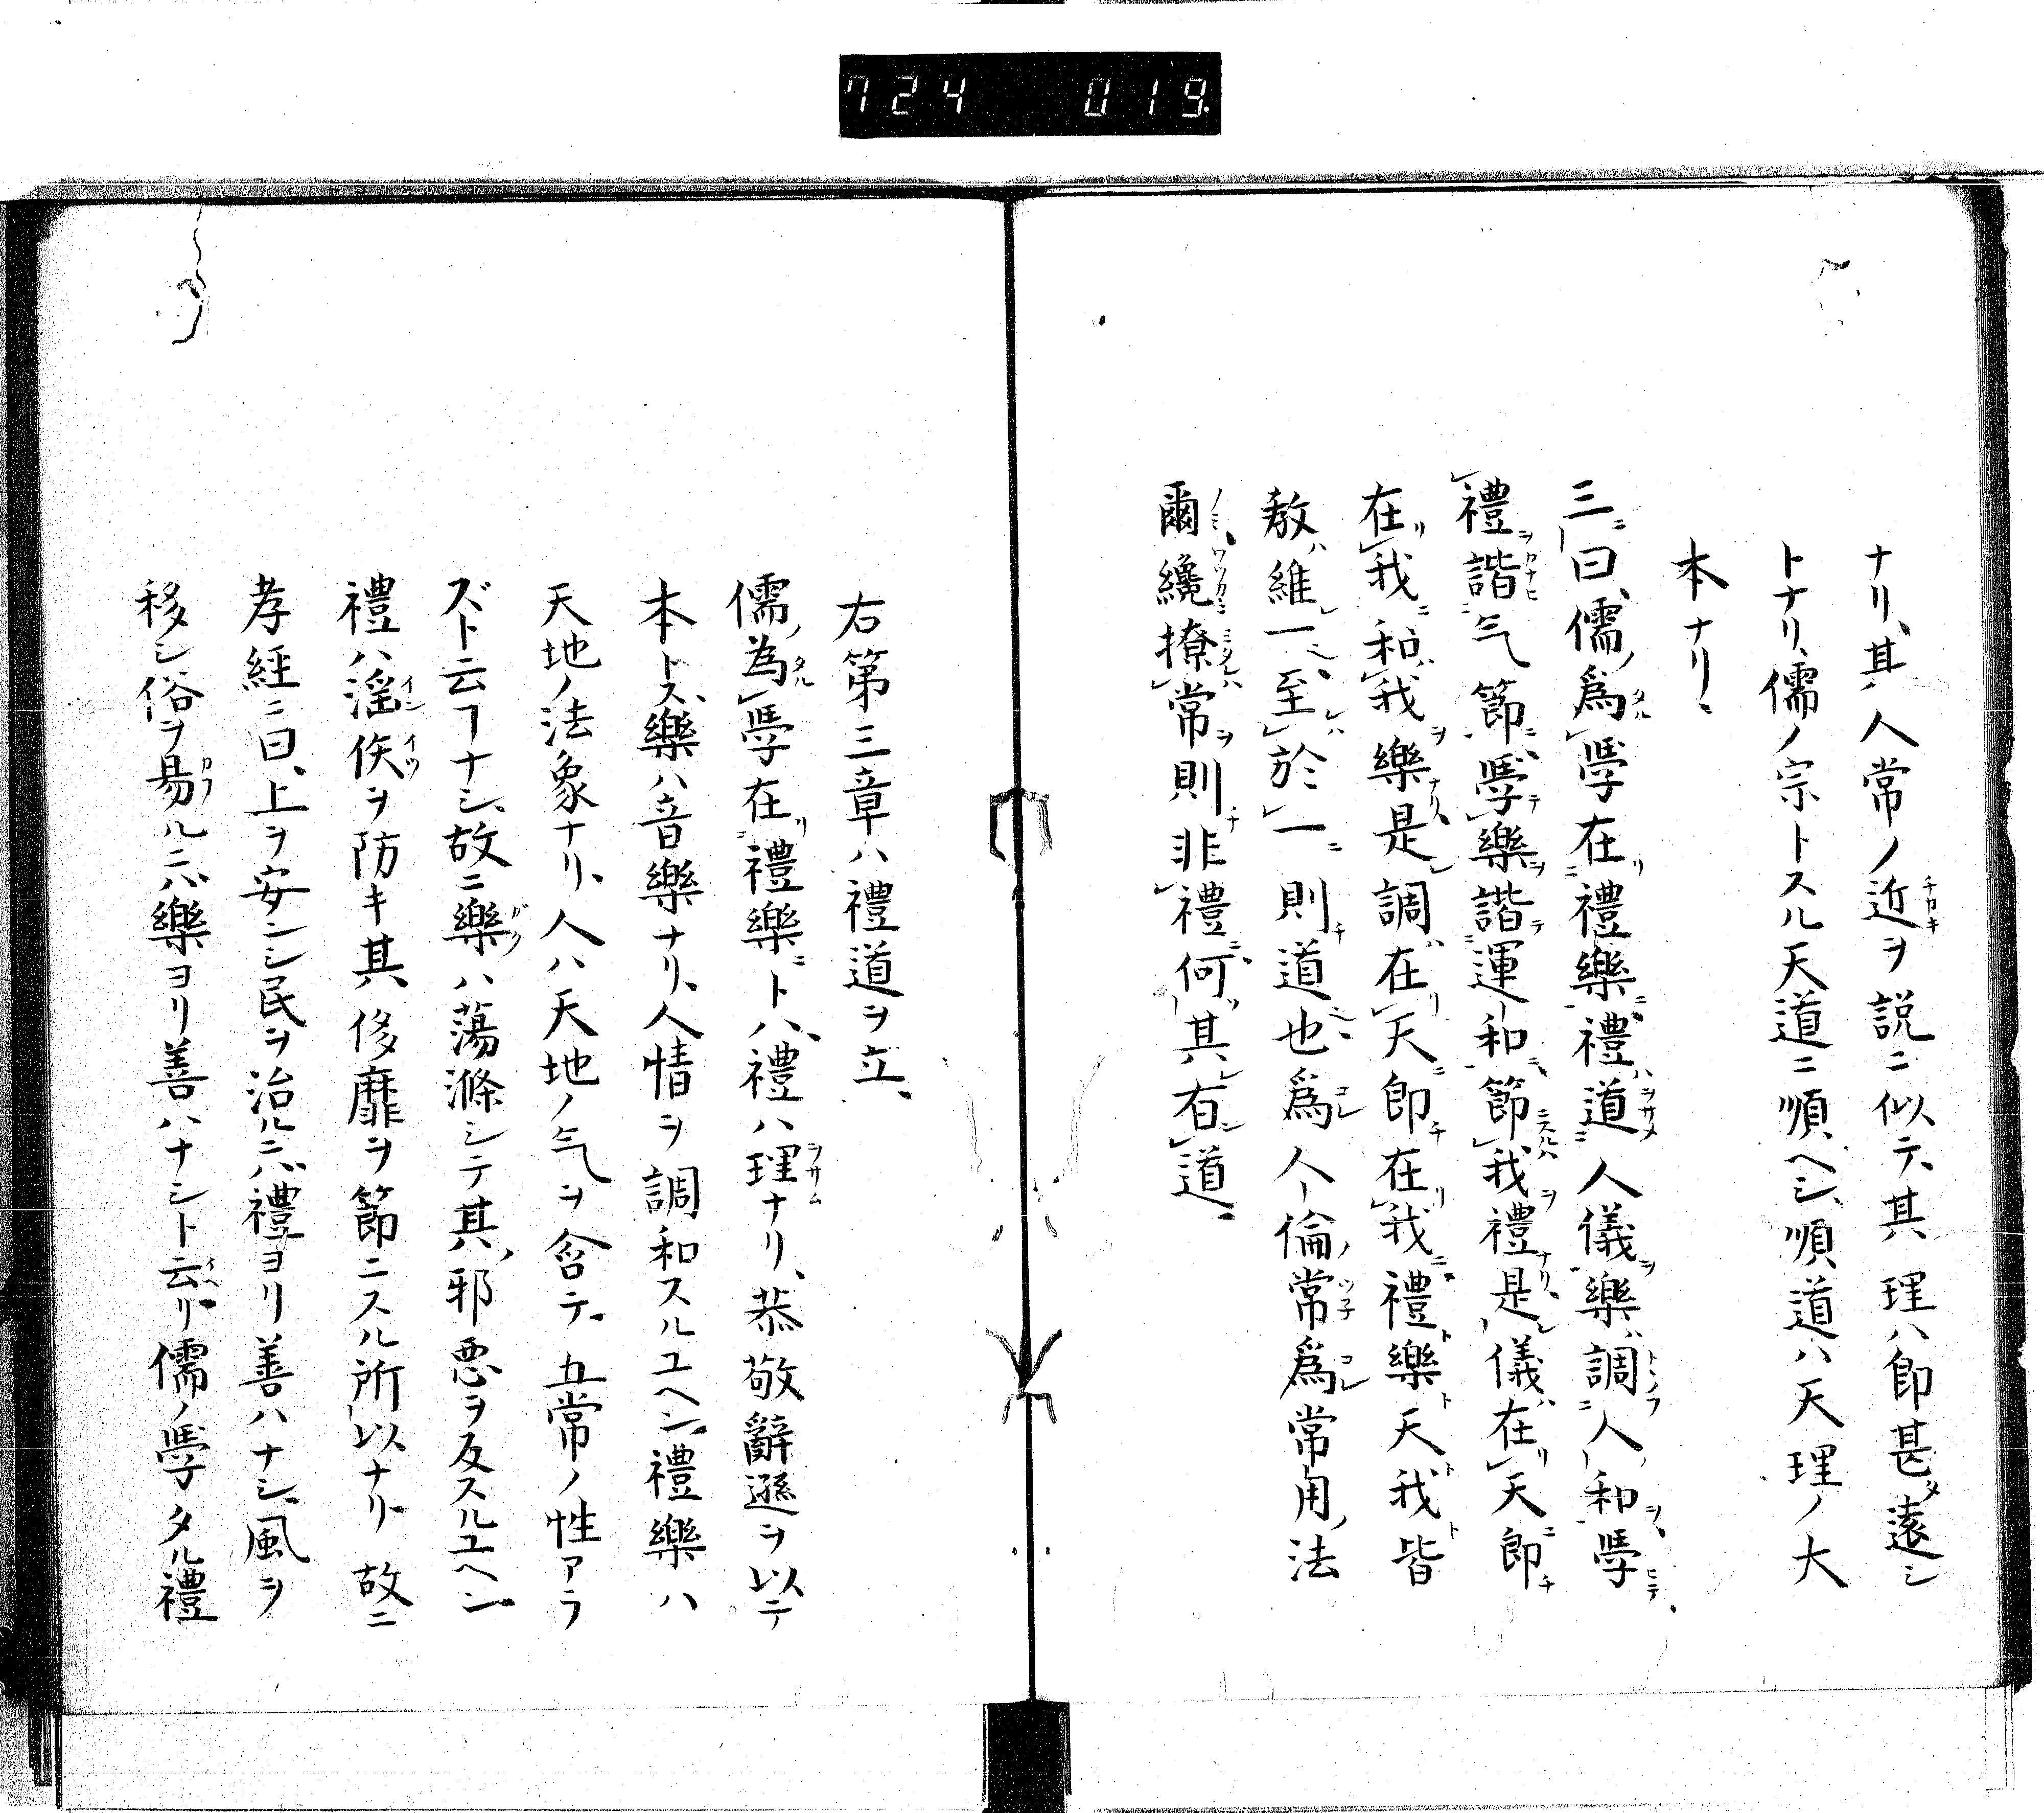 724 019
ナリ、其人常ノ近ヲ説ニ似テ、其理ハ即甚遠シ
トナリ、儒ノ宗トスル天道ニ順ヘシ、順道ハ天理ノ大
本ナリ、
三曰、儒爲學在禮樂禮道人儀樂調人和學
禮諧气節學樂諧運和節我禮是儀在天即
在我和我樂是調在天即在我禮樂天我皆
敎維一至於一則道也爲人倫常爲常用法
爾纔撩常則非禮何其有道
右第三章ハ禮道ヲ立、
儒ノ為學在禮樂ニトハ、禮ハ理ナリ、恭敬辭遜ヲ以テ
本トス、樂ハ音樂ナリ、人情ヲ調和スルユヘン、禮樂ハ
天地ノ法象ナリ、人ハ天地ノ气ヲ含テ、五常ノ性アラ
ズト云フナシ、故ニ樂ハ蕩滌シテ其ノ邪悪ヲ反スルユヘン、
禮ハ淫佚ヲ防キ其侈靡ヲ節ニスル所以ナリ、故ニ
孝經ニ曰、上ヲ安ンシ民ヲ治ルニハ、禮ヨリ善ハナシ、風ヲ
移シ俗ヲ易ルニハ、樂ヨリ善ハナシト云リ、儒ノ學タル禮